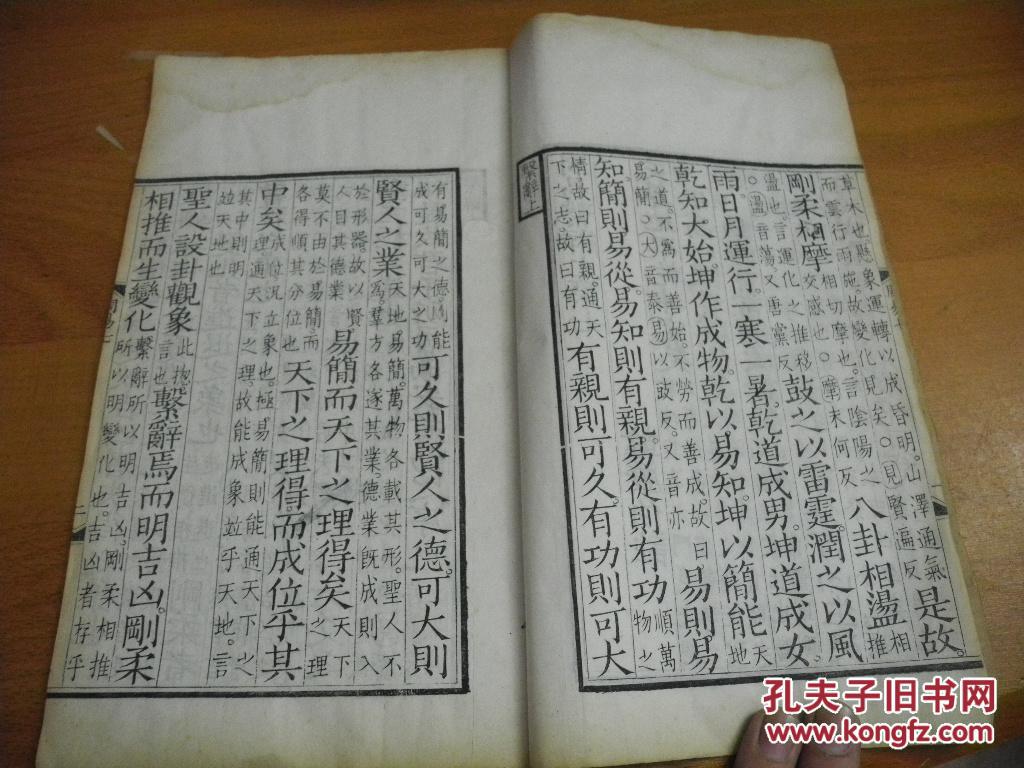 繫辭上
草木也懸象運轉以成昏明。山澤通氣
而雲行雨施故變化見矣。○見賢遍反
是故。
剛柔相摩
相切摩也。言陰陽之
交感也。○摩末何反
八卦相盪
相推
盪也。言運化之推移
○盪音蕩又唐黨反
鼓之以雷霆。潤之以風
雨。日月運行。一寒一暑。乾道成男。坤道成女。
乾知大始。坤作成物。乾以易知。坤以簡能
天地
之道。不爲而善始。不勞而善成。故曰
易簡。○大音泰易以豉反。又音亦
易則易
知。簡則易從。易知則有親。易從則有功
順萬物之
情故曰有親。通天
下之志。故曰有功
有親則可久。有功則可大
有易簡之德。則能
成可久可大之功
可久則賢人之德。可大則
賢人之業
天地易簡。萬物各載其形。聖人不
爲。羣方各遂其業。德業既成則入
於形器。故以賢
人目其德業
易簡而天下之理得矣
天下之理
莫不由於易簡而
各得順其分位也
天下之理得。而成位乎其
中矣
成位況立象也。極易簡則能通天下之
理通天下之理。故能成象並乎天地。言
其中則明
並天地也
聖人設卦觀象
此摠
言也
繫辭焉而明吉凶。剛柔
相推而生變化
繫辭所以明吉凶。剛柔相推
所以明變化也。吉凶者存乎
孔夫子旧书网
www.kongfz.com